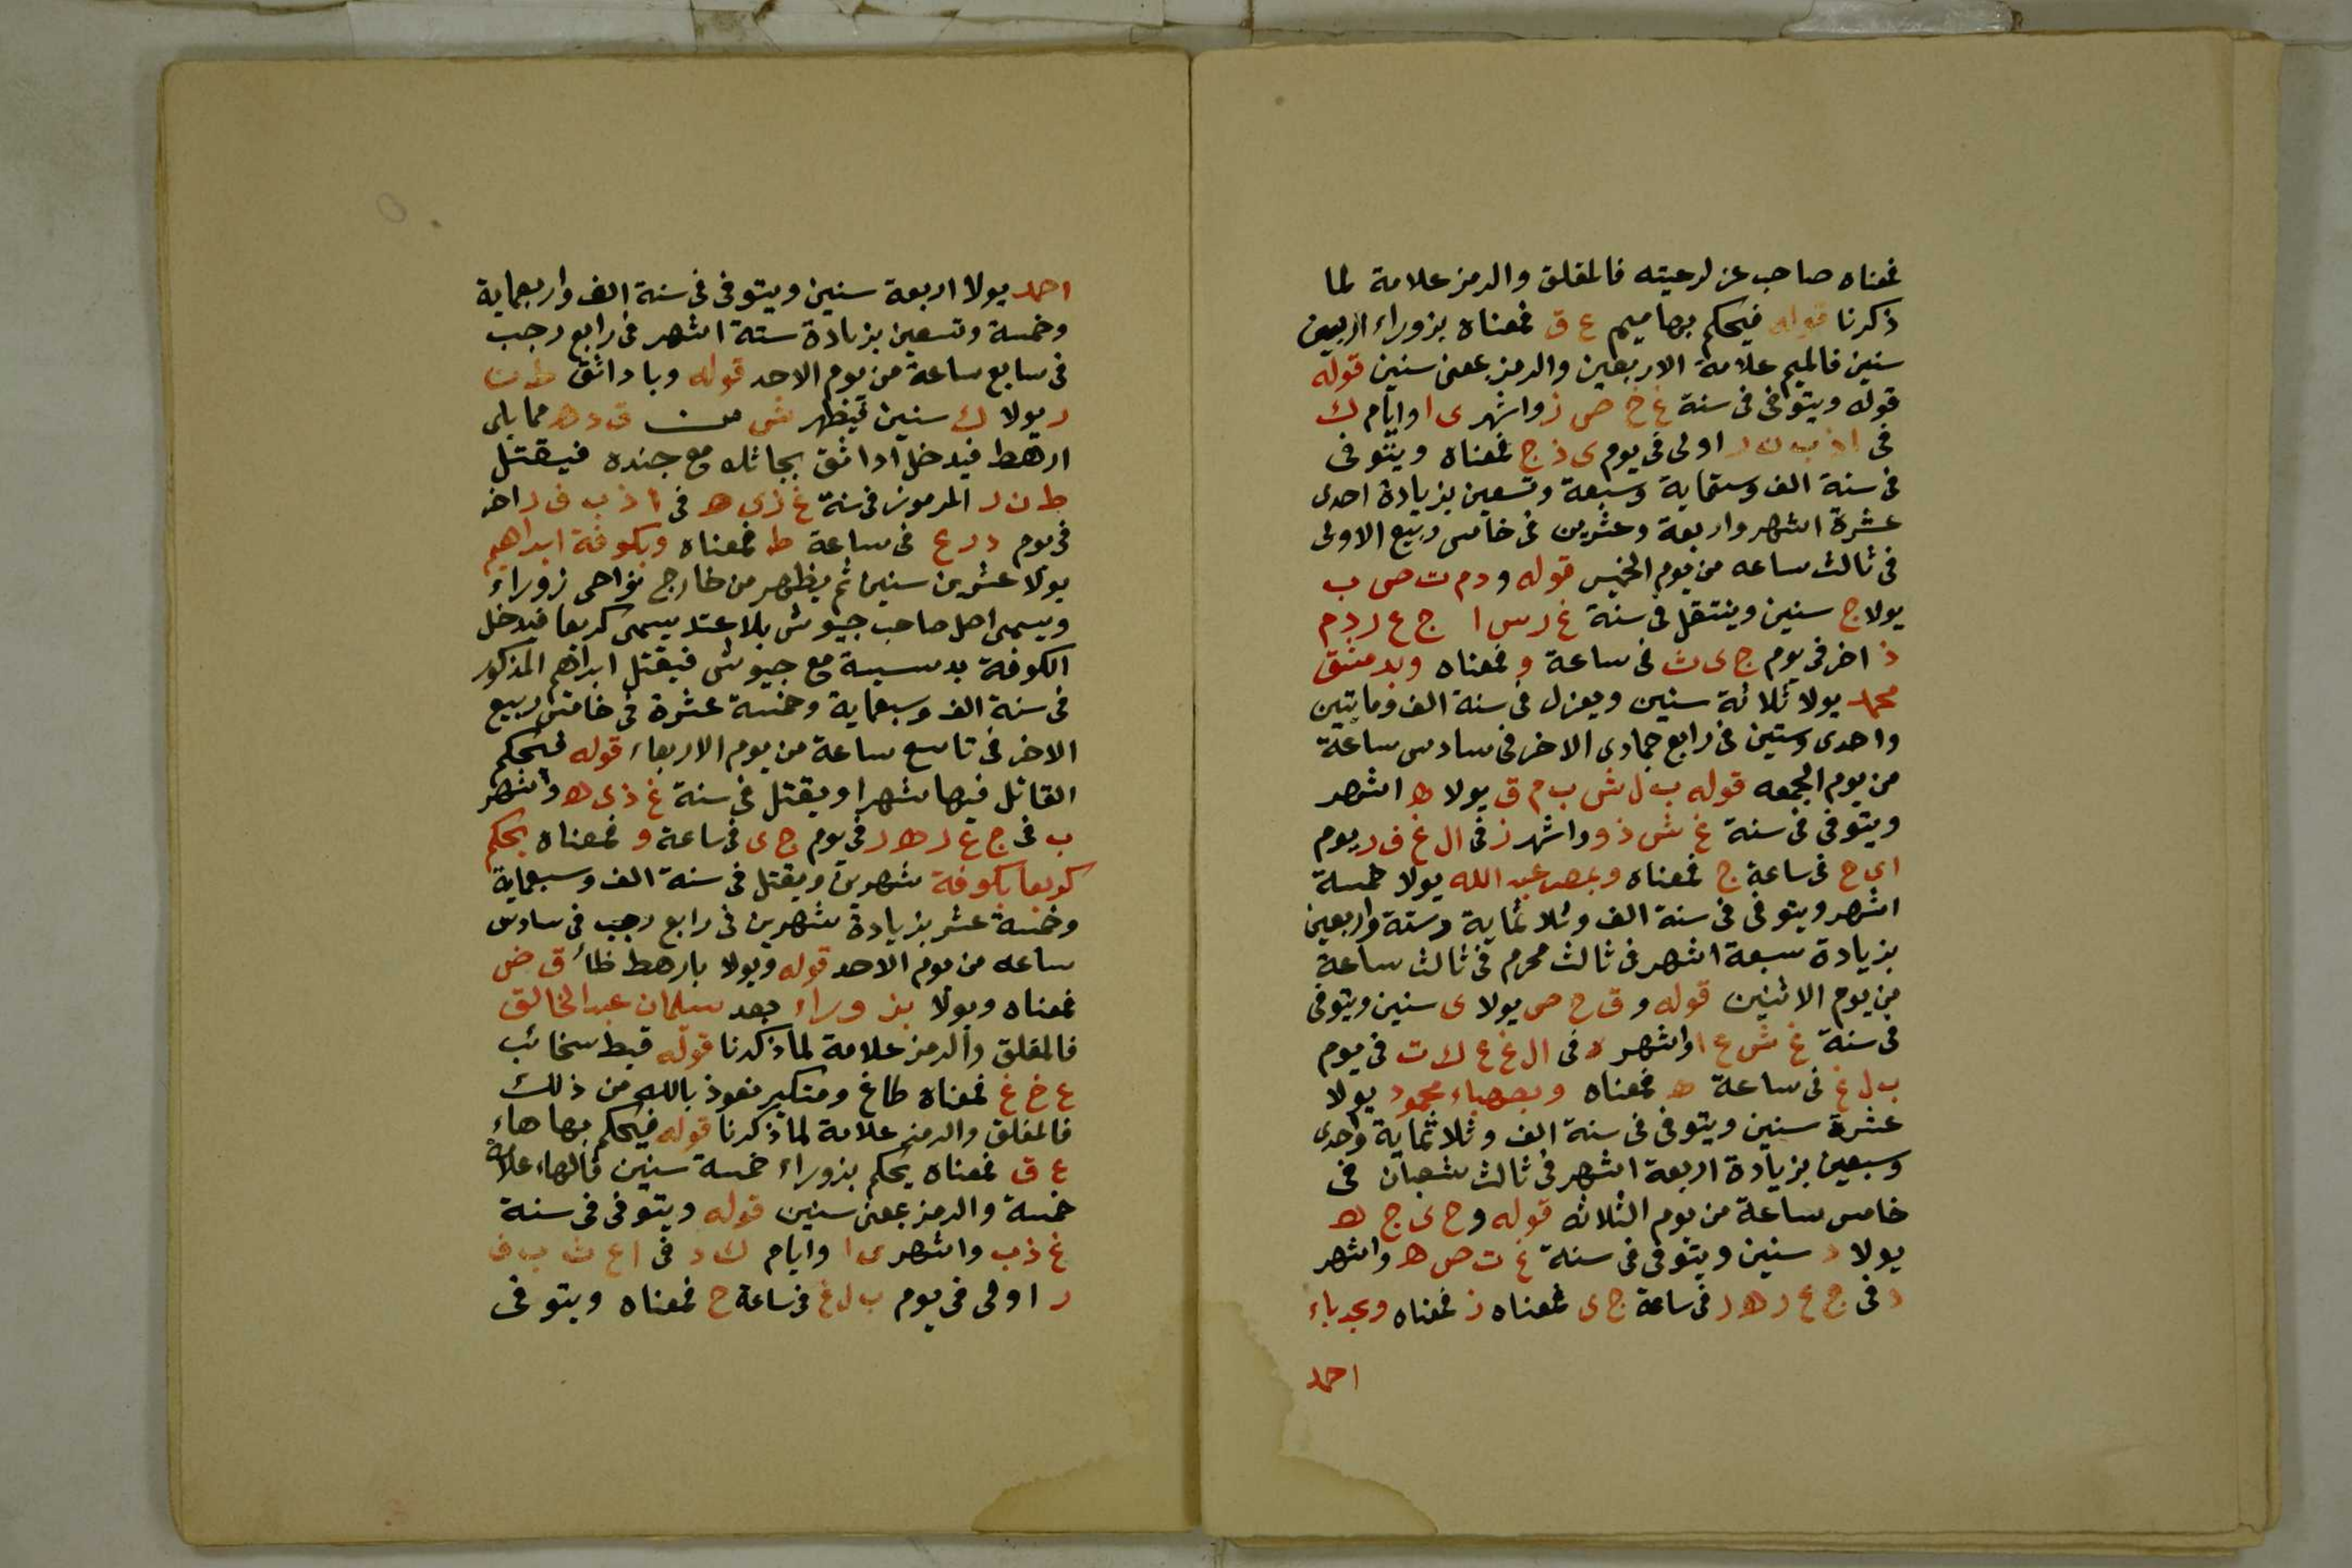 فمعناه صاحب عز لرعيته فالمقلق والرمز علامة لما
ذكرنا قوله فيحكم بها ميم ع ق فمعناه بزوراء اربعين
سنين فالميم علامة الاربعين والرمز بمعنى سنين قوله
قوله ويتوفى فى سنة غ خ ص ز واشهر ى ا وايام ك
فى اولى فى يوم ى ذ ج فمعناه ويتوفى
فى سنة الف وستماية وسبعة وتسعين بزيادة احدى
عشرة اشهر واربعة وعشرين فى خامس ربيع الاولى
فى ثالث ساعه من يوم الخميس قوله ودم ت ص ب
يولا ج سنين وينتقل فى سنة غ ر س ا ج ع ر د م
ذ اخر فى يوم ج ى ث فى ساعة و فمعناه وبدمشق
محمد يولا ثلاثة سنين ويعزل فى سنة الف وماتين
واحدى وستين فى رابع جمادى الاخر فى سادس ساعة
من يوم الجمعه قوله ب ل ش ب م ق يولا ه اشهر
ويتوفى فى سنة غ ش ذ و واشهر ز فى ال غ ف ر يوم
اى ح فى ساعة ج فمعناه وبمصر عبد الله يولا خمسة
اشهر ويتوفى فى سنة الف وثلاثماية وستة واربعين
بزيادة سبعة اشهر فى ثالث محرم فى ثالث ساعة
من يوم الاثنين قوله و ق ح ص يولا ى سنين ويتوفى
فى سنة غ ش ع ا واشهر د فى ال غ ع ك ت فى يوم
ب ل غ فى ساعة ه فمعناه وبصهباء محمود يولا
عشرة سنين ويتوفى فى سنة الف وثلاثماية واحدى
وسبعين بزيادة اربعة اشهر فى ثالث شعبان فى
خامس ساعة من يوم الثلاثه قوله وح ى ج ه
يولا د سنين ويتوفى فى سنة غ ت ص ه واشهر
د فى ج ع ر ه ر فى ساعة ج ى فمعناه ز فمعناه وبجدباء
احمد
احمد يولا اربعة سنين ويتوفى فى سنة الف واربعماية
وخمسة وتسعين بزيادة ستة اشهر فى رابع رجب
فى سابع ساعة من يوم الاحد قوله وباداثق ط ن
ر يولا ك سنين فيظهر ق د ه مما يلى
ارهط فيدخل اداثق بجاثك مع جنده فيقتل
ط ن ر المرموز فى سنة غ ذ ى ه فى ا ذ ب ف ر اخر
فى يوم د ر ع فى ساعة ط فمعناه وبكوفة ابراهيم
يولا عشرين سنين ثم يظهر من خارج نواحى زوراء
ويسمى اصل صاحب جيوش بلا عتد يسمى كريعا فيدخل
الكوفة بدسيسة مع جيوش فيقتل ابراهم المذكور
فى سنة الف وسبعماية وخمسة عشرة فى خامس ربيع
الاخر فى تاسع ساعة من يوم الاربعاء قوله فيحكم
القاتل فيها شهرا ويقتل فى سنة غ ذ ى ه واشهر
ب فى ج ع ر ه ر فى يوم ج ى فى ساعة و فمعناه يحكم
كريعا بكوفة شهرين ويقتل فى سنة الف وسبعماية
وخمسة عشر بزيادة شهرين فى رابع رجب فى سادس
ساعه من يوم الاحد قوله ويولا بارهط ظائ ق ض
فمعناه ويولا بزوراء بعد سلمان عبد الخالق
فالمقلق والرمز علامة لما ذكرنا قوله قبط سخائب
ع خ غ فمعناه طاغ ومتكبر نعوذ بالله من ذلك
فالمقلق والرمز علامة لما ذكرنا قوله فيحكم بها هاء
ع ق فمعناه يحكم بزوراء خمسة سنين فالهاء علامة
خمسة والرمز بمعنى سنين قوله ويتوفى فى سنة
غ ذ ب واشهر ى ا وايام ك د فى ا ع ث ب ف
ر اولى فى يوم ب ل غ فى ساعة ح فمعناه ويتوفى